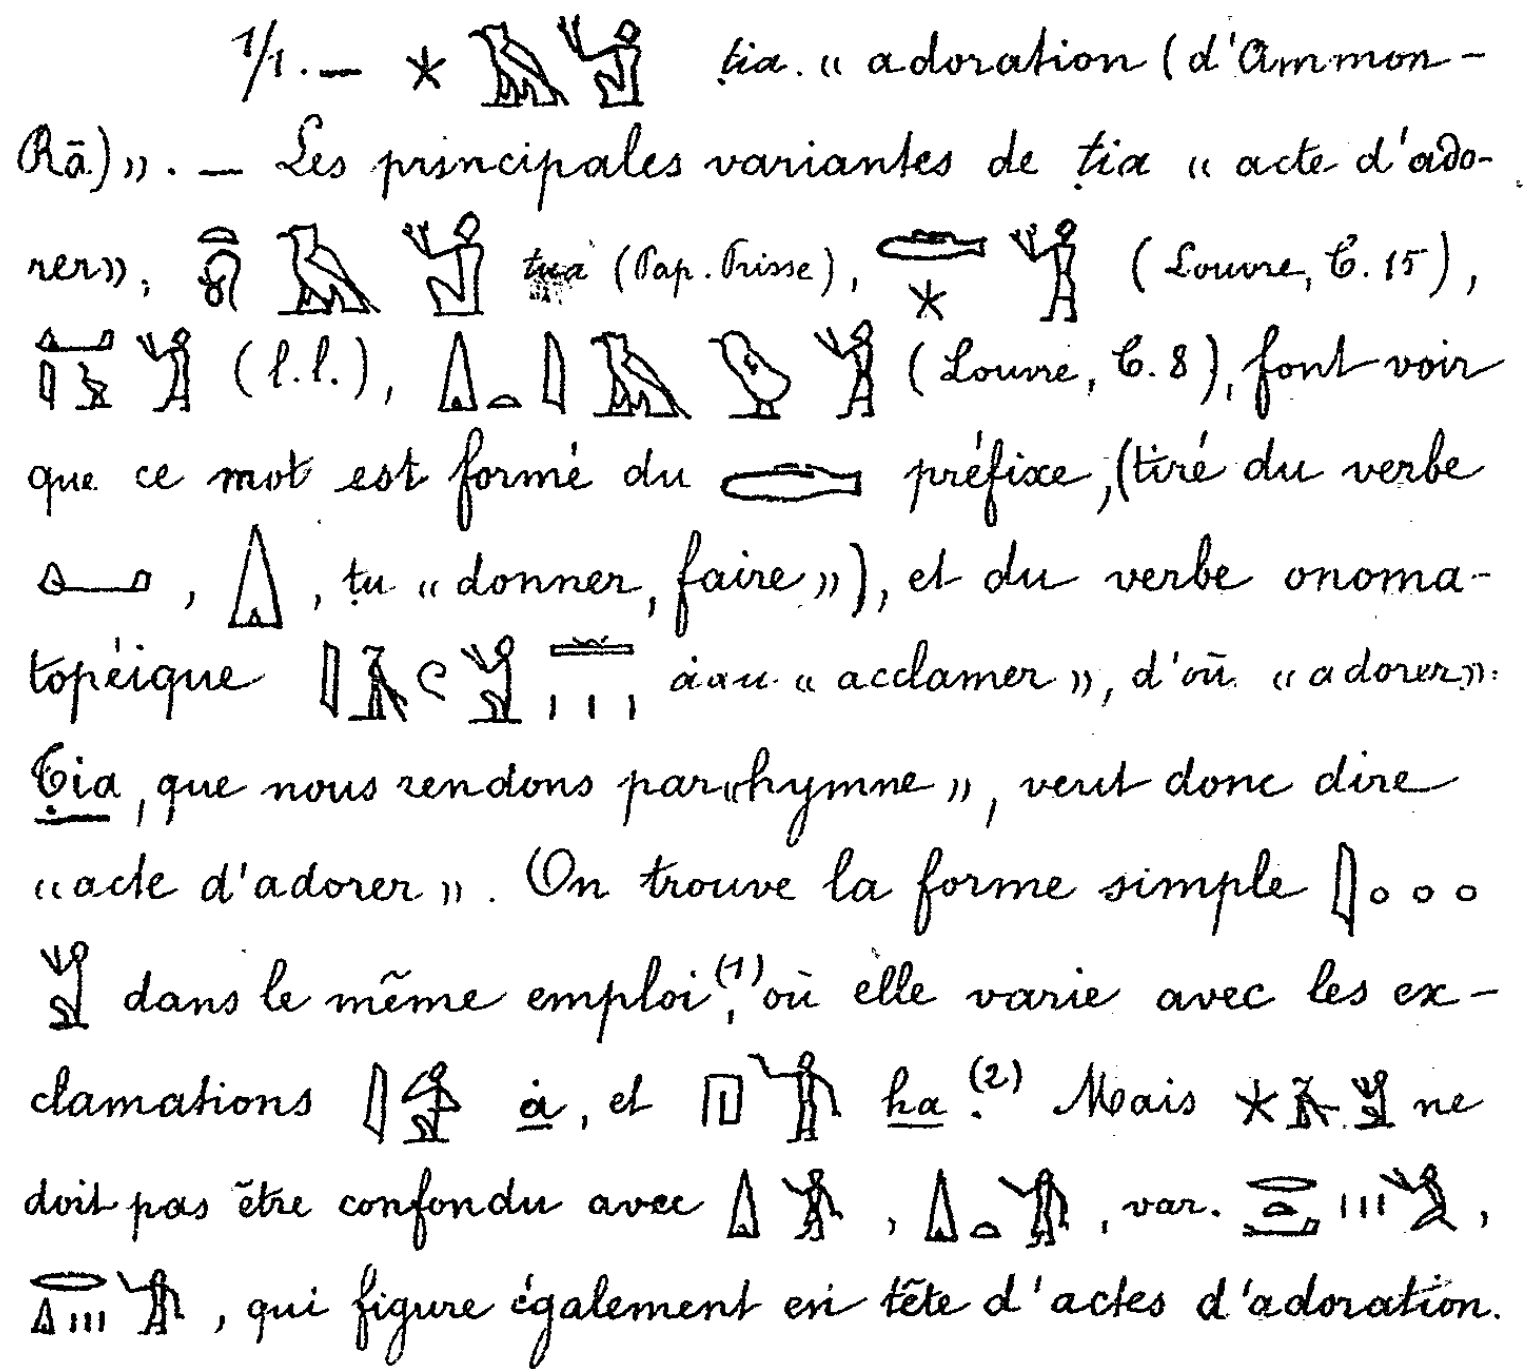 1/1. — 𓇼𓄿𓀃 ṭia. « adoration (d'Ammon-
Rā) ». — Les principales variantes de ṭia « acte d'ado-
rer », 𓄿𓀃 tua (Pap. Prisse), 𓇼𓀃 (Louvre, C. 15),
(l.l.), 𓏙𓏏𓇋𓄿𓅱𓀃 (Louvre, C. 8), font voir
que ce mot est formé du préfixe, (tiré du verbe
𓂞, 𓏙, ṭu « donner, faire »), et du verbe onoma-
topéique 𓇋𓄿𓏲𓀃𓏛𓏥 ȧau « acclamer », d'où « adorer ».
Ṭia, que nous rendons par « hymne », veut donc dire
« acte d'adorer ». On trouve la forme simple 𓇋
𓀃 dans le même emploi (1), où elle varie avec les ex-
clamations 𓇋𓀁 ȧ, et 𓉔 ha (2). Mais 𓇼𓄿𓀃 ne
doit pas être confondu avec 𓏙, 𓏙𓏏, var.
qui figure également en tête d'actes d'adoration.